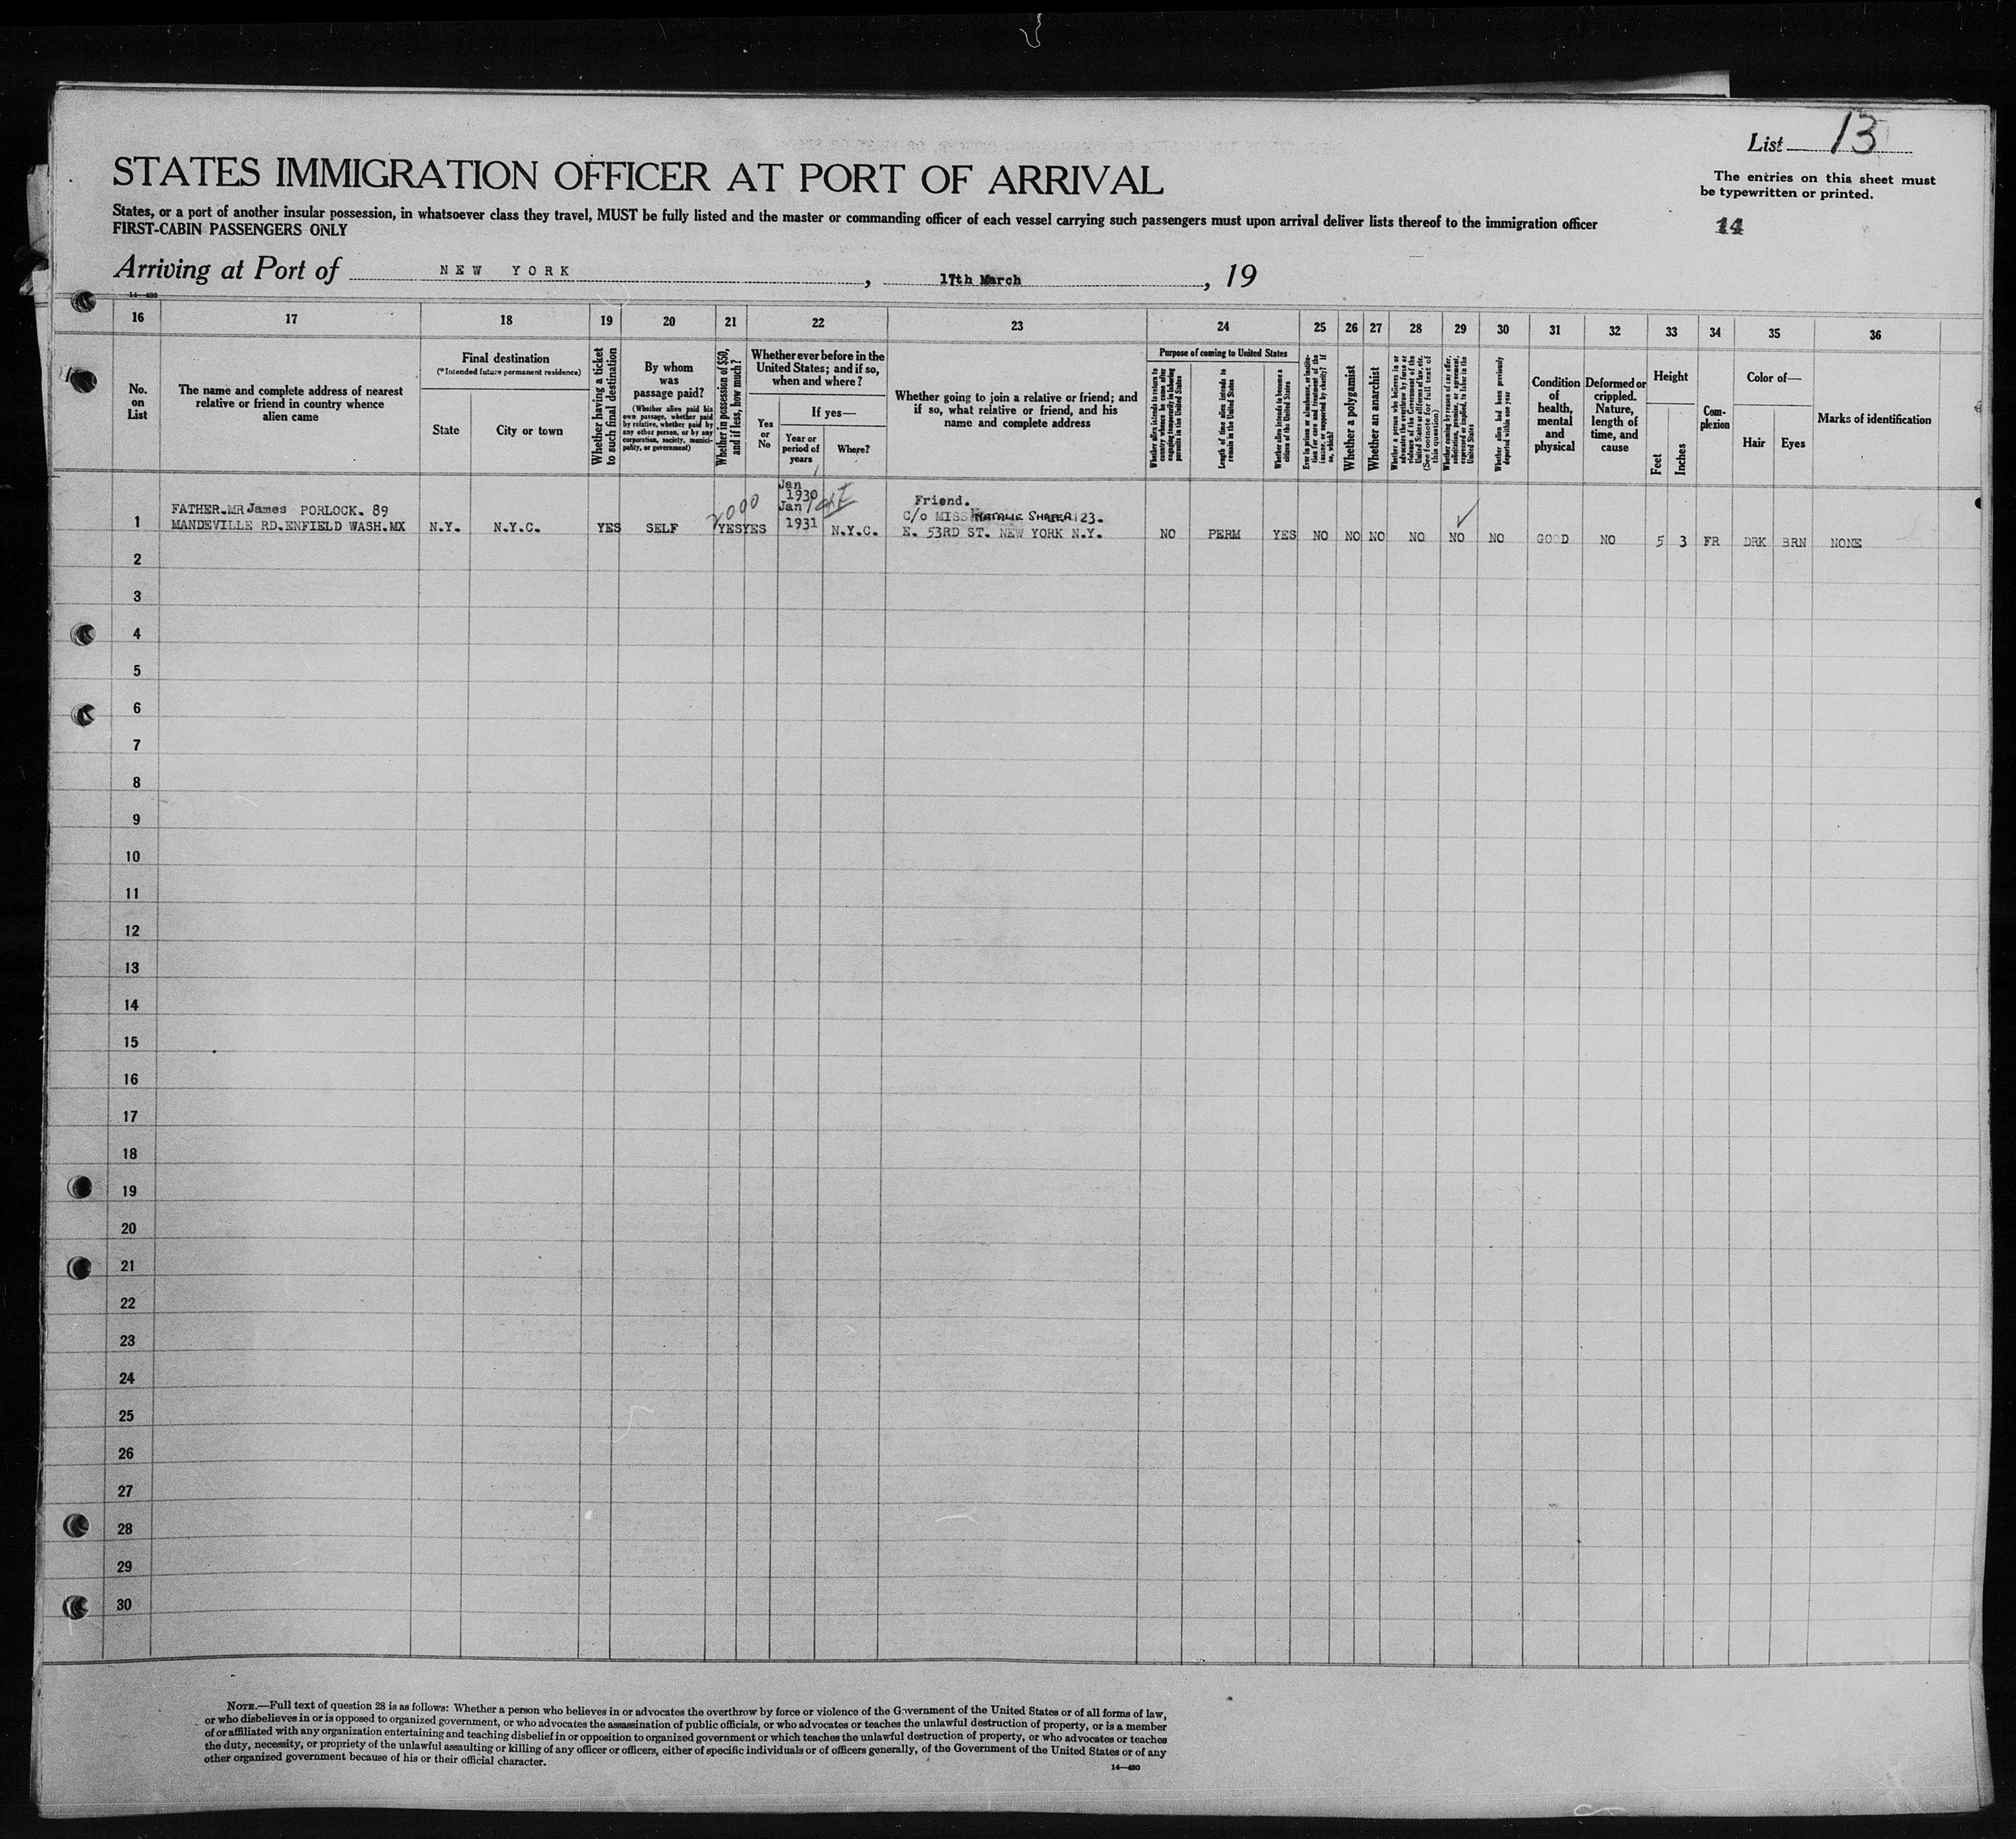 List 13
STATES IMMIGRATION OFFICER AT PORT OF ARRIVAL
The entries on this sheet must
be typewritten or printed.
States, or a port of another insular possession, in whatsoever class they travel, MUST be fully listed and the master or commanding officer of each vessel carrying such passengers must upon arrival deliver lists thereof to the immigration officer
FIRST-CABIN PASSENGERS ONLY
14
Arriving at Port of NEW YORK, 17th March, 19
14—480
16 17 18 19 20 21 22 23 24 25 26 27 28 29 30 31 32 33 34 35 36
No. on List
The name and complete address of nearest relative or friend in country whence alien came
Final destination
(*Intended future permanent residence)
State
City or town
Whether having a ticket to such final destination
By whom was passage paid?
(Whether alien paid his own passage, whether paid by relative, whether paid by any other person, or by any corporation, society, municipality, or government)
Whether in possession of $50, and if less, how much?
Whether ever before in the United States; and if so, when and where?
Yes or No
If yes—
Year or period of years
Where?
Whether going to join a relative or friend; and if so, what relative or friend, and his name and complete address
Purpose of coming to United States
Whether alien intends to return to country whence he came after engaging temporarily in laboring pursuits in the United States
Length of time alien intends to remain in the United States
Whether alien intends to become a citizen of the United States
Ever in prison or almshouse, or institution for care and treatment of the insane, or supported by charity? If so, which?
Whether a polygamist
Whether an anarchist
Whether a person who believes in or advocates the overthrow by force or violence of the Government of the United States or of all forms of law, etc. (See footnote for full text of this question)
Whether coming by reason of any offer, solicitation, promise, or agreement, expressed or implied, to labor in the United States
Whether alien had been previously deported within one year
Condition of health, mental and physical
Deformed or crippled. Nature, length of time, and cause
Height
Feet
Inches
Complexion
Color of—
Hair
Eyes
Marks of identification
1 FATHER.MR James PORLOCK. 89
MANDEVILLE RD.ENFIELD WASH.MX N.Y. N.Y.C. YES SELF 2000 YES YES Jan 1930 Jan 1931 N.Y.C. Friend.
C/o MISS NATALIE SHAFER, 123.
E. 53RD ST. NEW YORK N.Y. NO PERM YES NO NO NO NO NO NO GOOD NO 5 3 FR DRK BRN NONE
2
3
4
5
6
7
8
9
10
11
12
13
14
15
16
17
18
19
20
21
22
23
24
25
26
27
28
29
30
NOTE.—Full text of question 28 is as follows: Whether a person who believes in or advocates the overthrow by force or violence of the Government of the United States or of all forms of law,
or who disbelieves in or is opposed to organized government, or who advocates the assassination of public officials, or who advocates or teaches the unlawful destruction of property, or is a member
of or affiliated with any organization entertaining and teaching disbelief in or opposition to organized government or which teaches the unlawful destruction of property, or who advocates or teaches
the duty, necessity, or propriety of the unlawful assaulting or killing of any officer or officers, either of specific individuals or of officers generally, of the Government of the United States or of any
other organized government because of his or their official character.
14—480